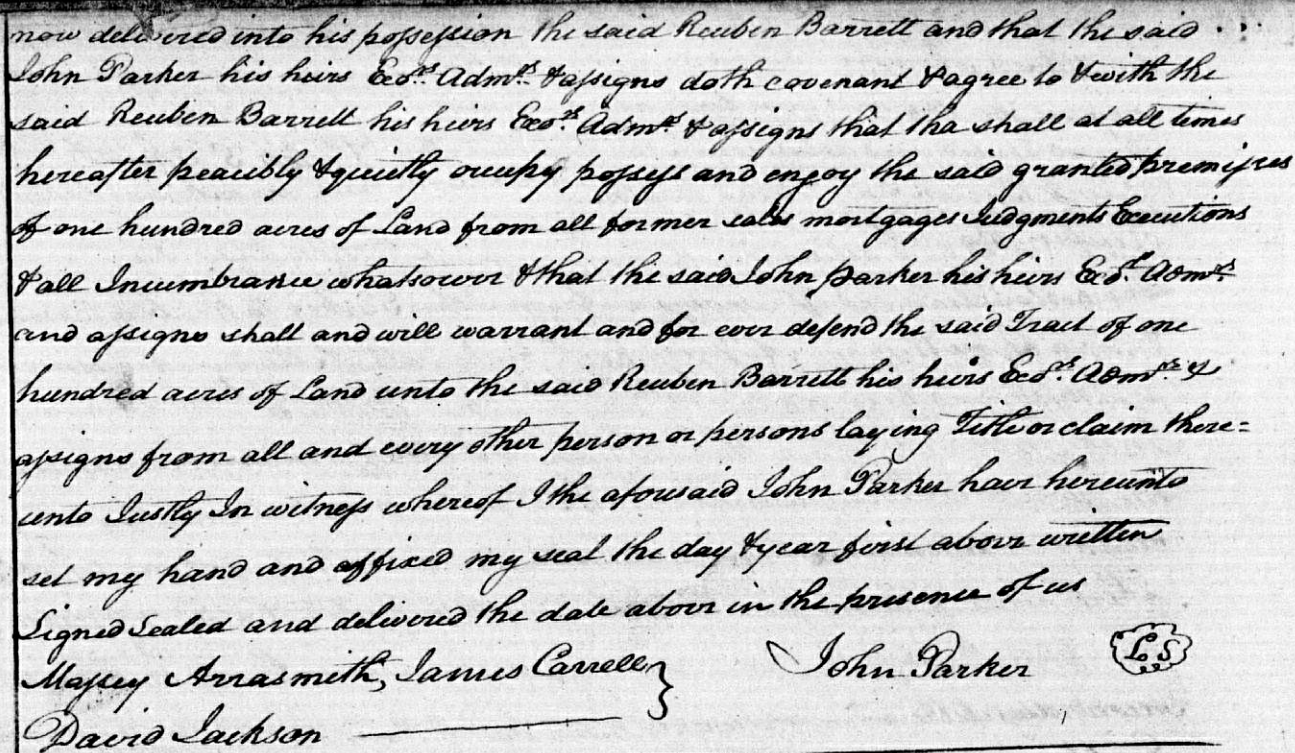 now delivered into his possession the said Reuben Barrett and that the said
John Parker his heirs Exors Admrs & assigns doth covenant & agree to & with the
said Reuben Barrett his heirs Exors Admrs & assigns that tha shall at all times
hereafter peacibly & quietly occupy possess and enjoy the said granted premisses
of one hundred acres of Land from all former sales mortgages Judgments Executions
& all Incumbrance whatsoever & that the said John Parker his heirs Exors Admrs
and assigns shall and will warrant and for ever defend the said Tract of one
hundred acres of Land unto the said Reuben Barrett his heirs Exors Admrs &
assigns from all and every other person or persons laying Title or claim there=
unto Justly In witness whereof I the aforesaid John Parker have hereunto
set my hand and affixed my seal the day & year first above written
Signed Sealed and delivered the date above in the presence of us
Massey Arrasmith, James Carrell } John Parker LS
David Jackson